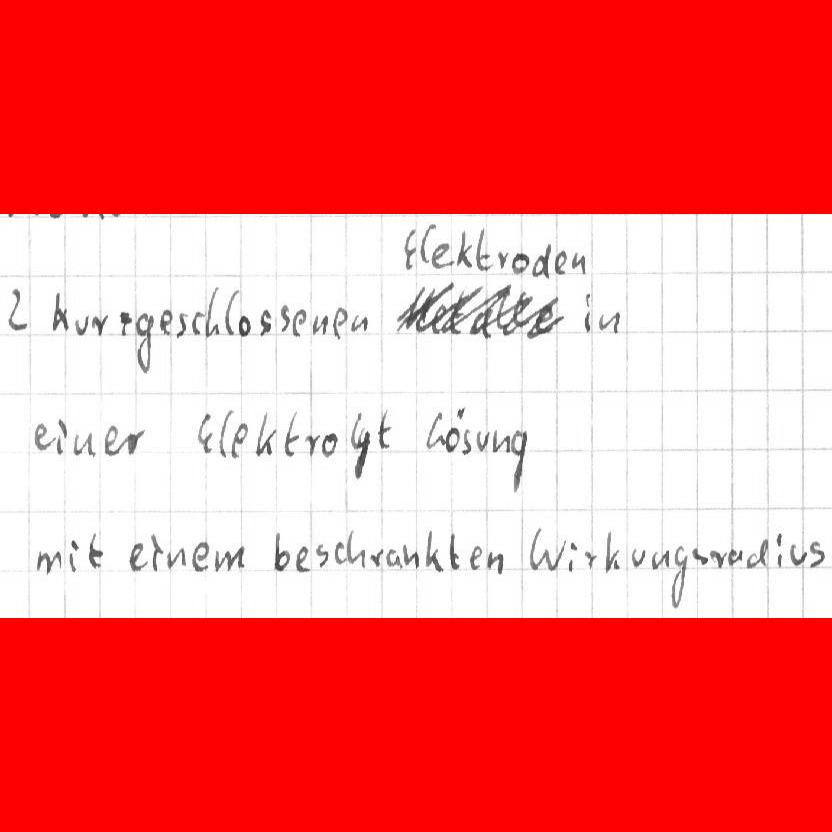 Elektroden
2 kurzgeschlossenen in
einer Elektrolyt Lösung
mit einem beschrankten Wirkungsradius